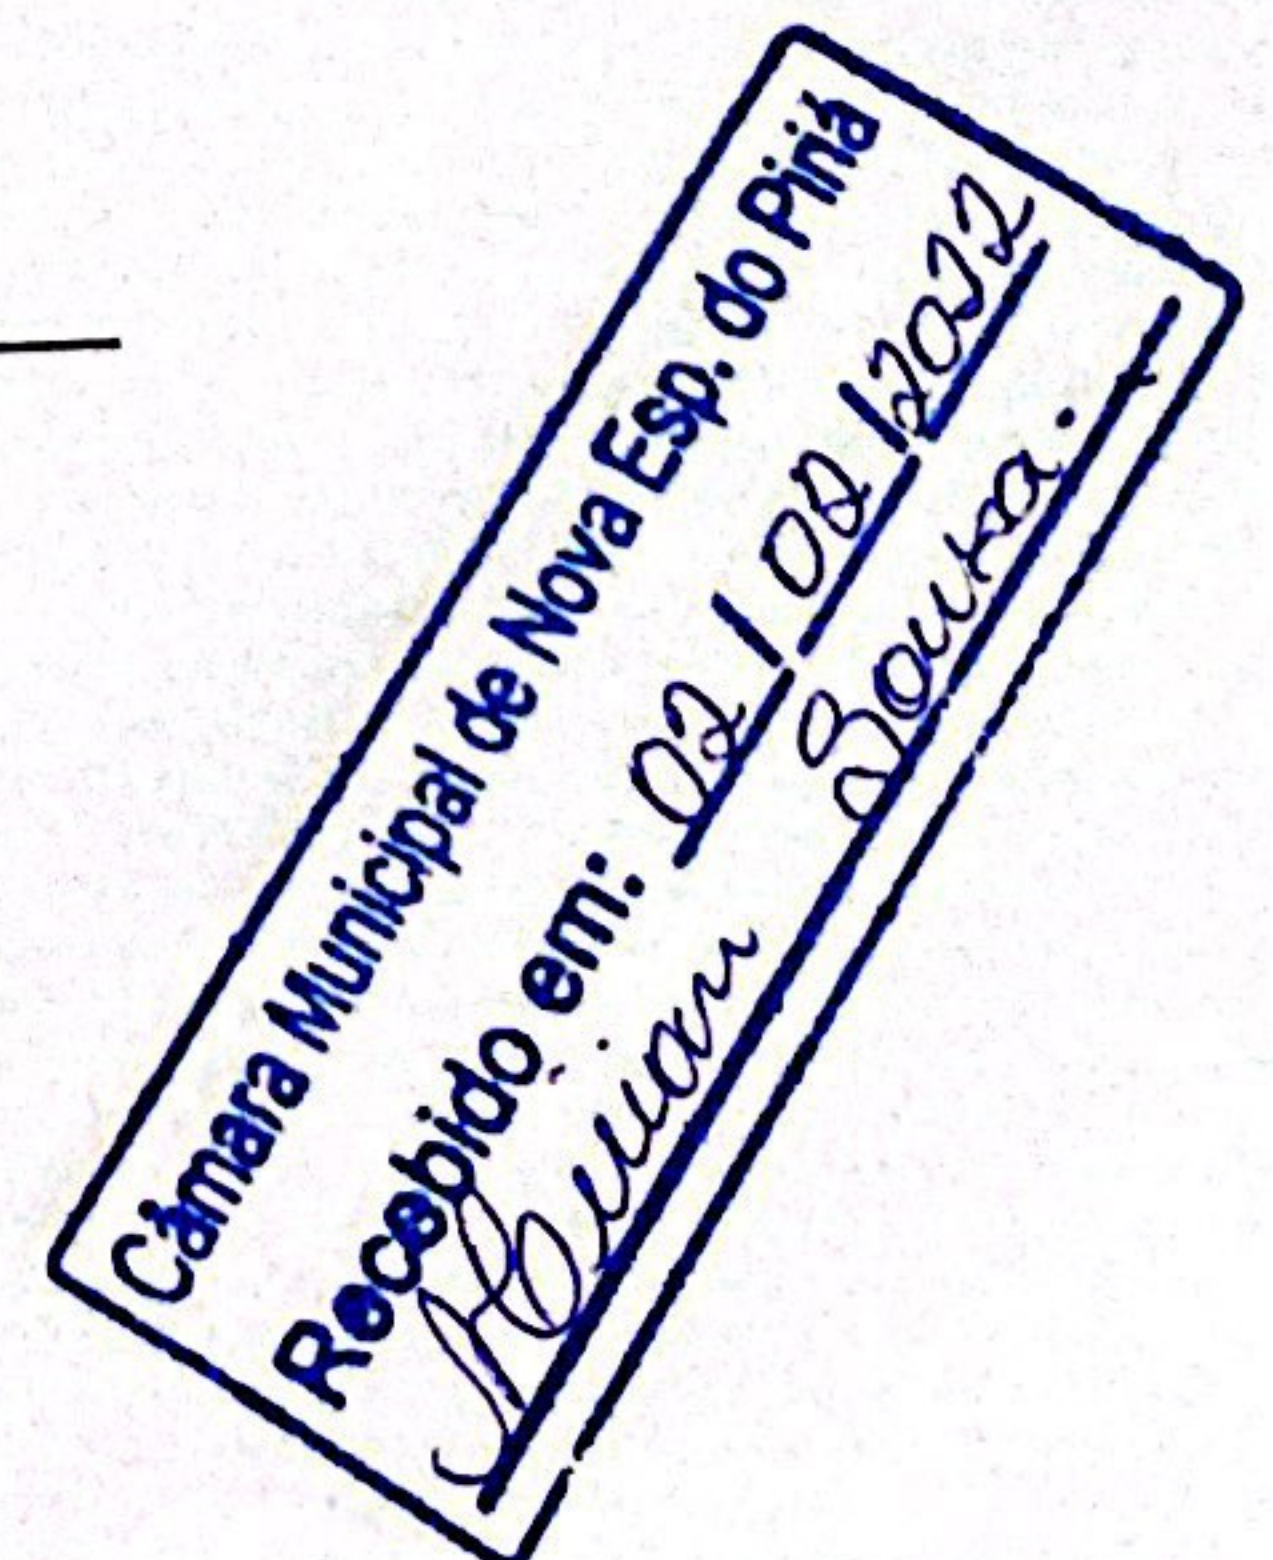 Câmara Municipal de Nova Esp. do Piriá
Recebido em: 02/02/2022
Souza.